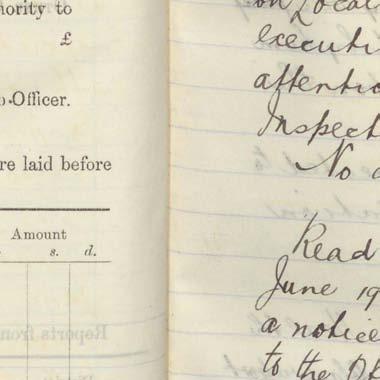 ority to
£
Officer.
re laid before
Amount
s. d.
Reports from
on Local
executi
attentio
Inspect
No
Read
June 19
a notice
to the